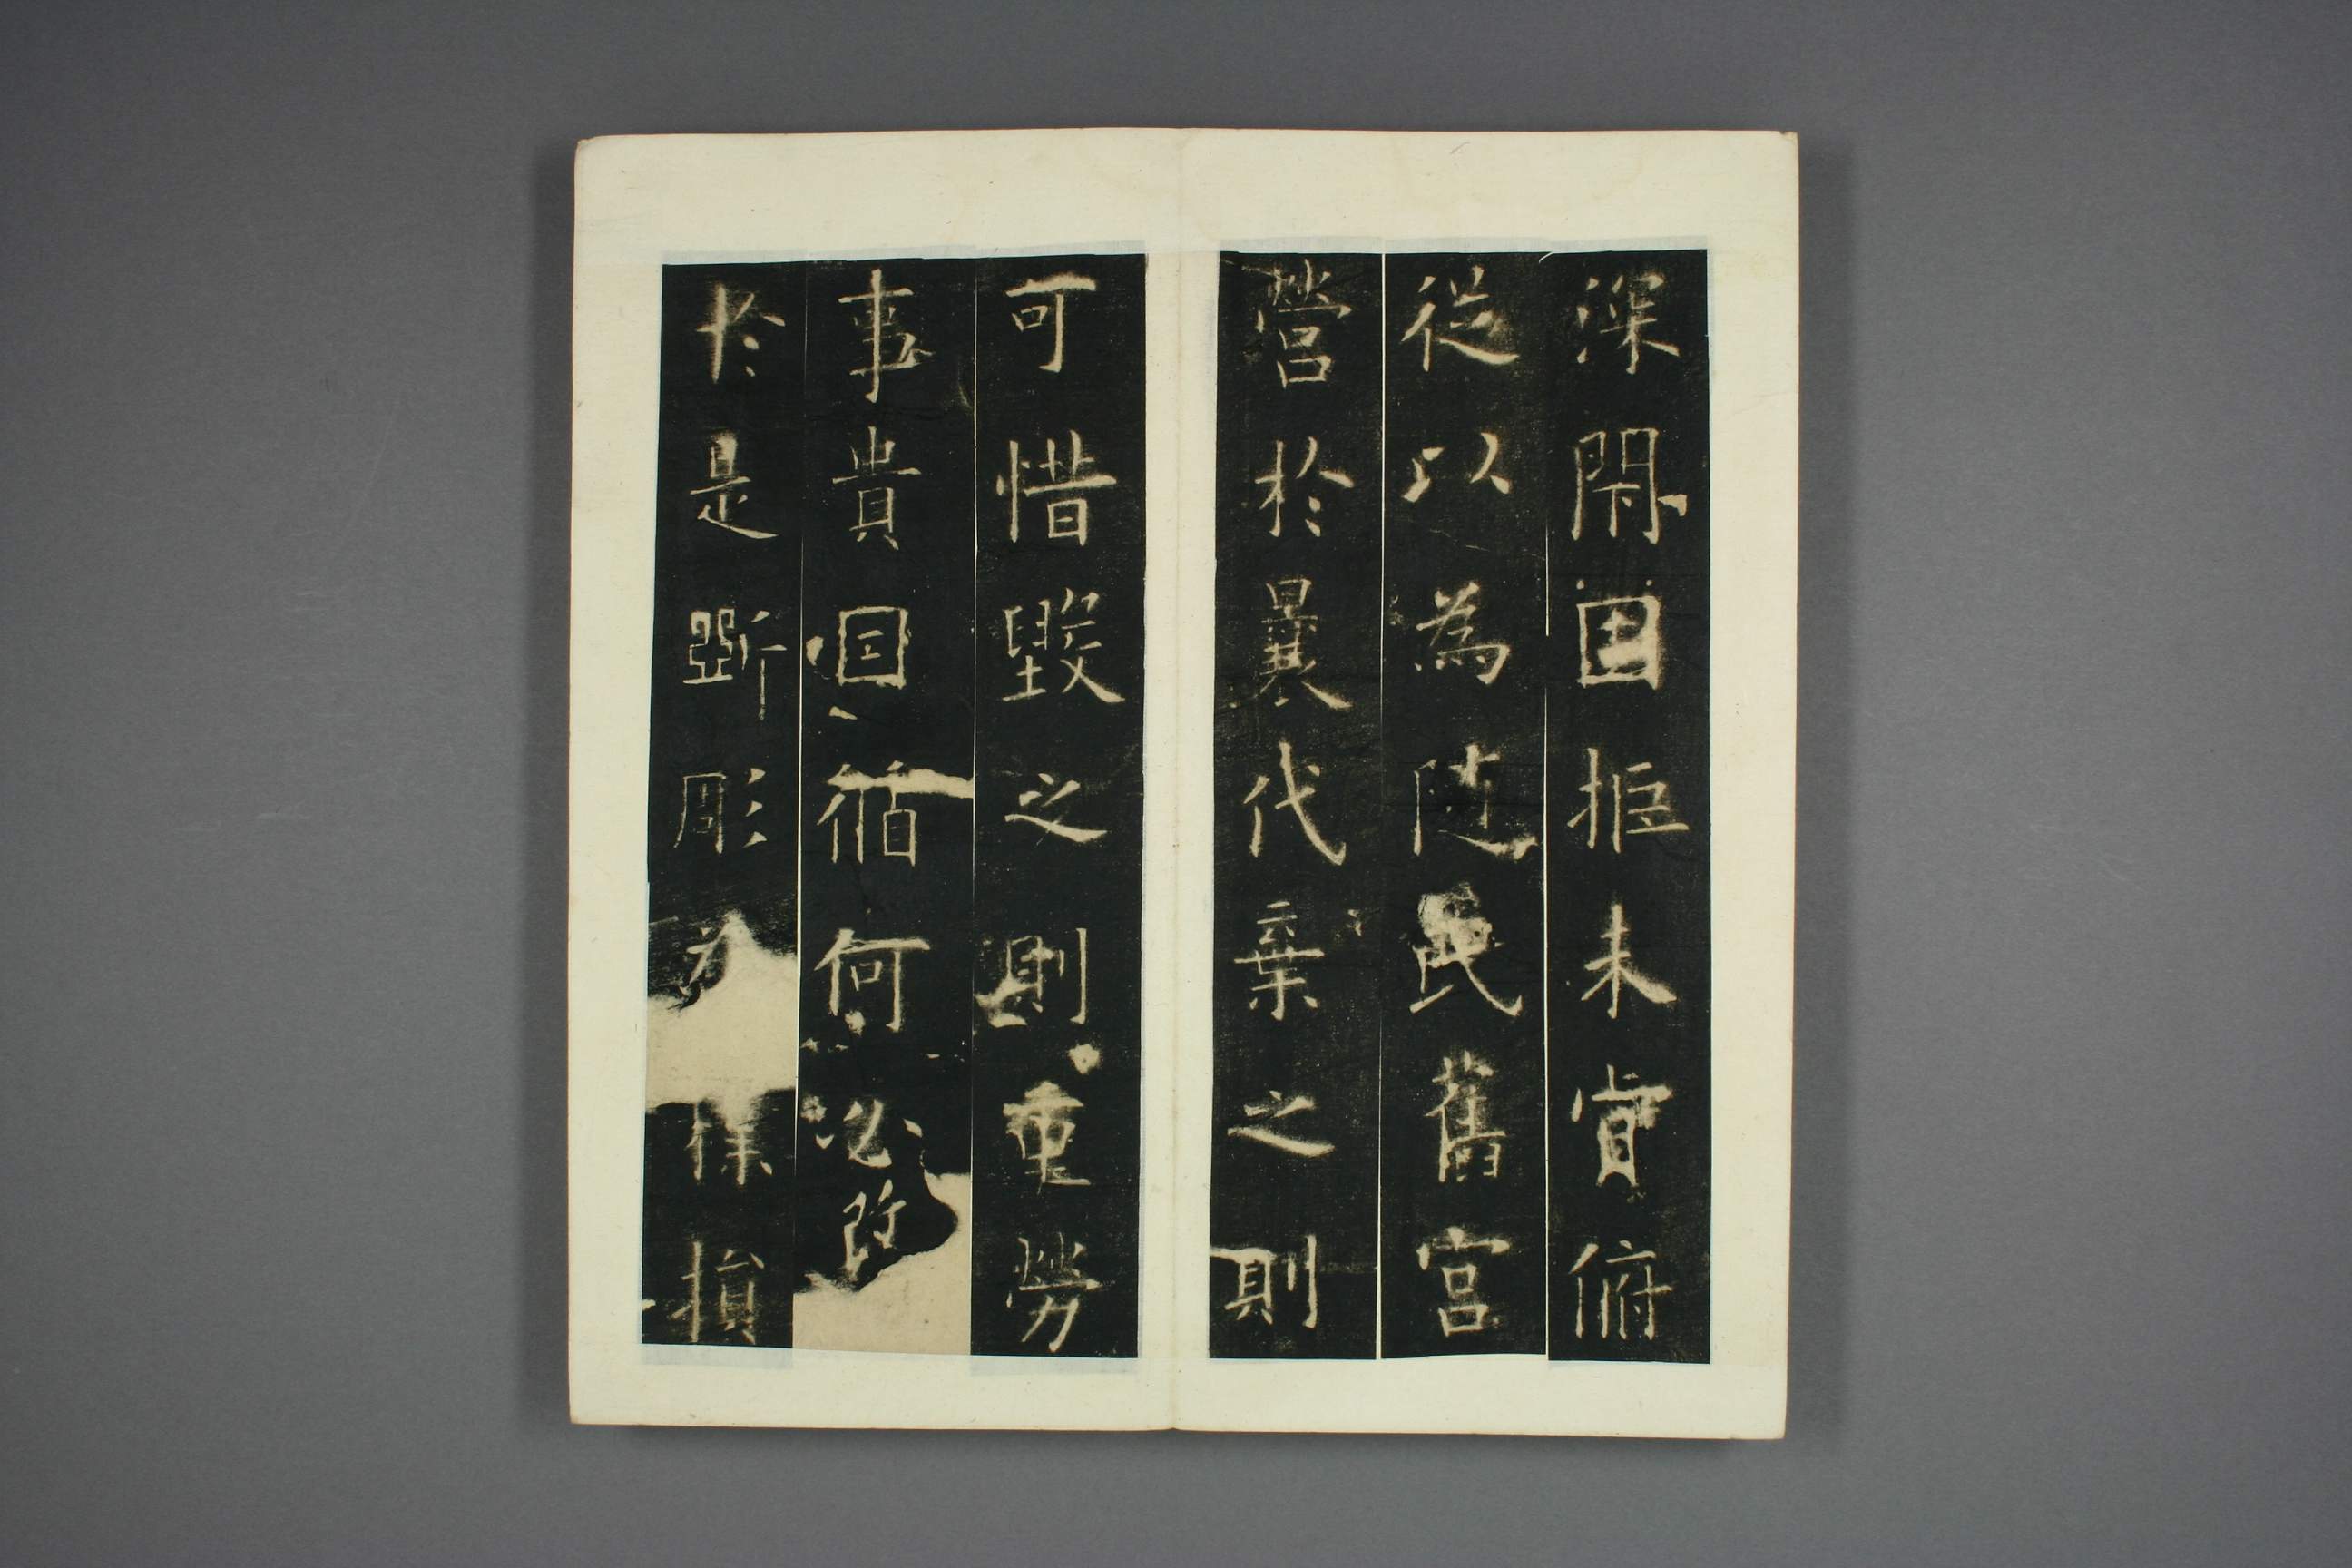 深閇固拒未肯俯
從以為随氏舊宮
營於曩代棄之則
可惜毀之則重勞
事貴因循何必改
於是斲彫為樸損